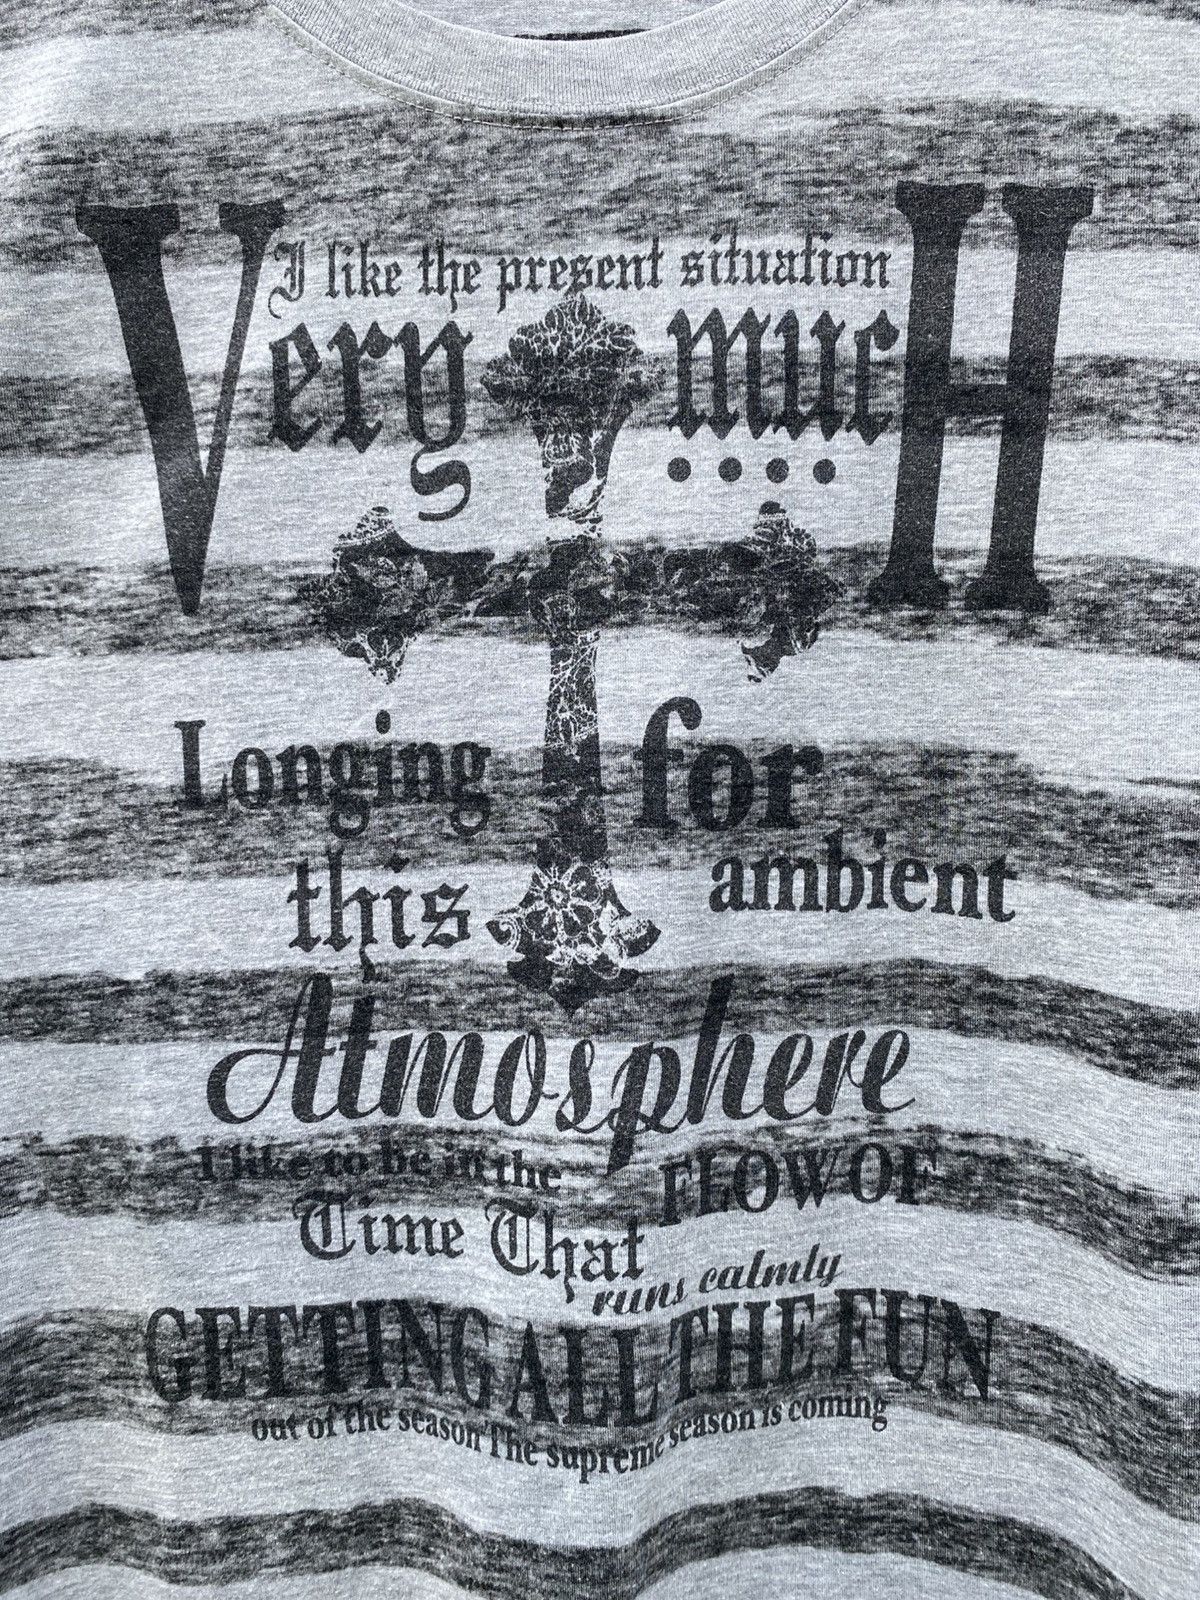 I like the present situation
Very mucH
....
Longing for
this ambient
Atmosphere
I like to be in the FLOW OF
Time That
runs calmly
GETTING ALL THE FUN
out of the season The supreme season is coming